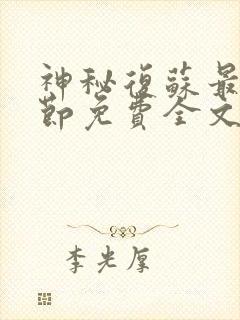 神秘復蘇最
節免費全文
李光厚